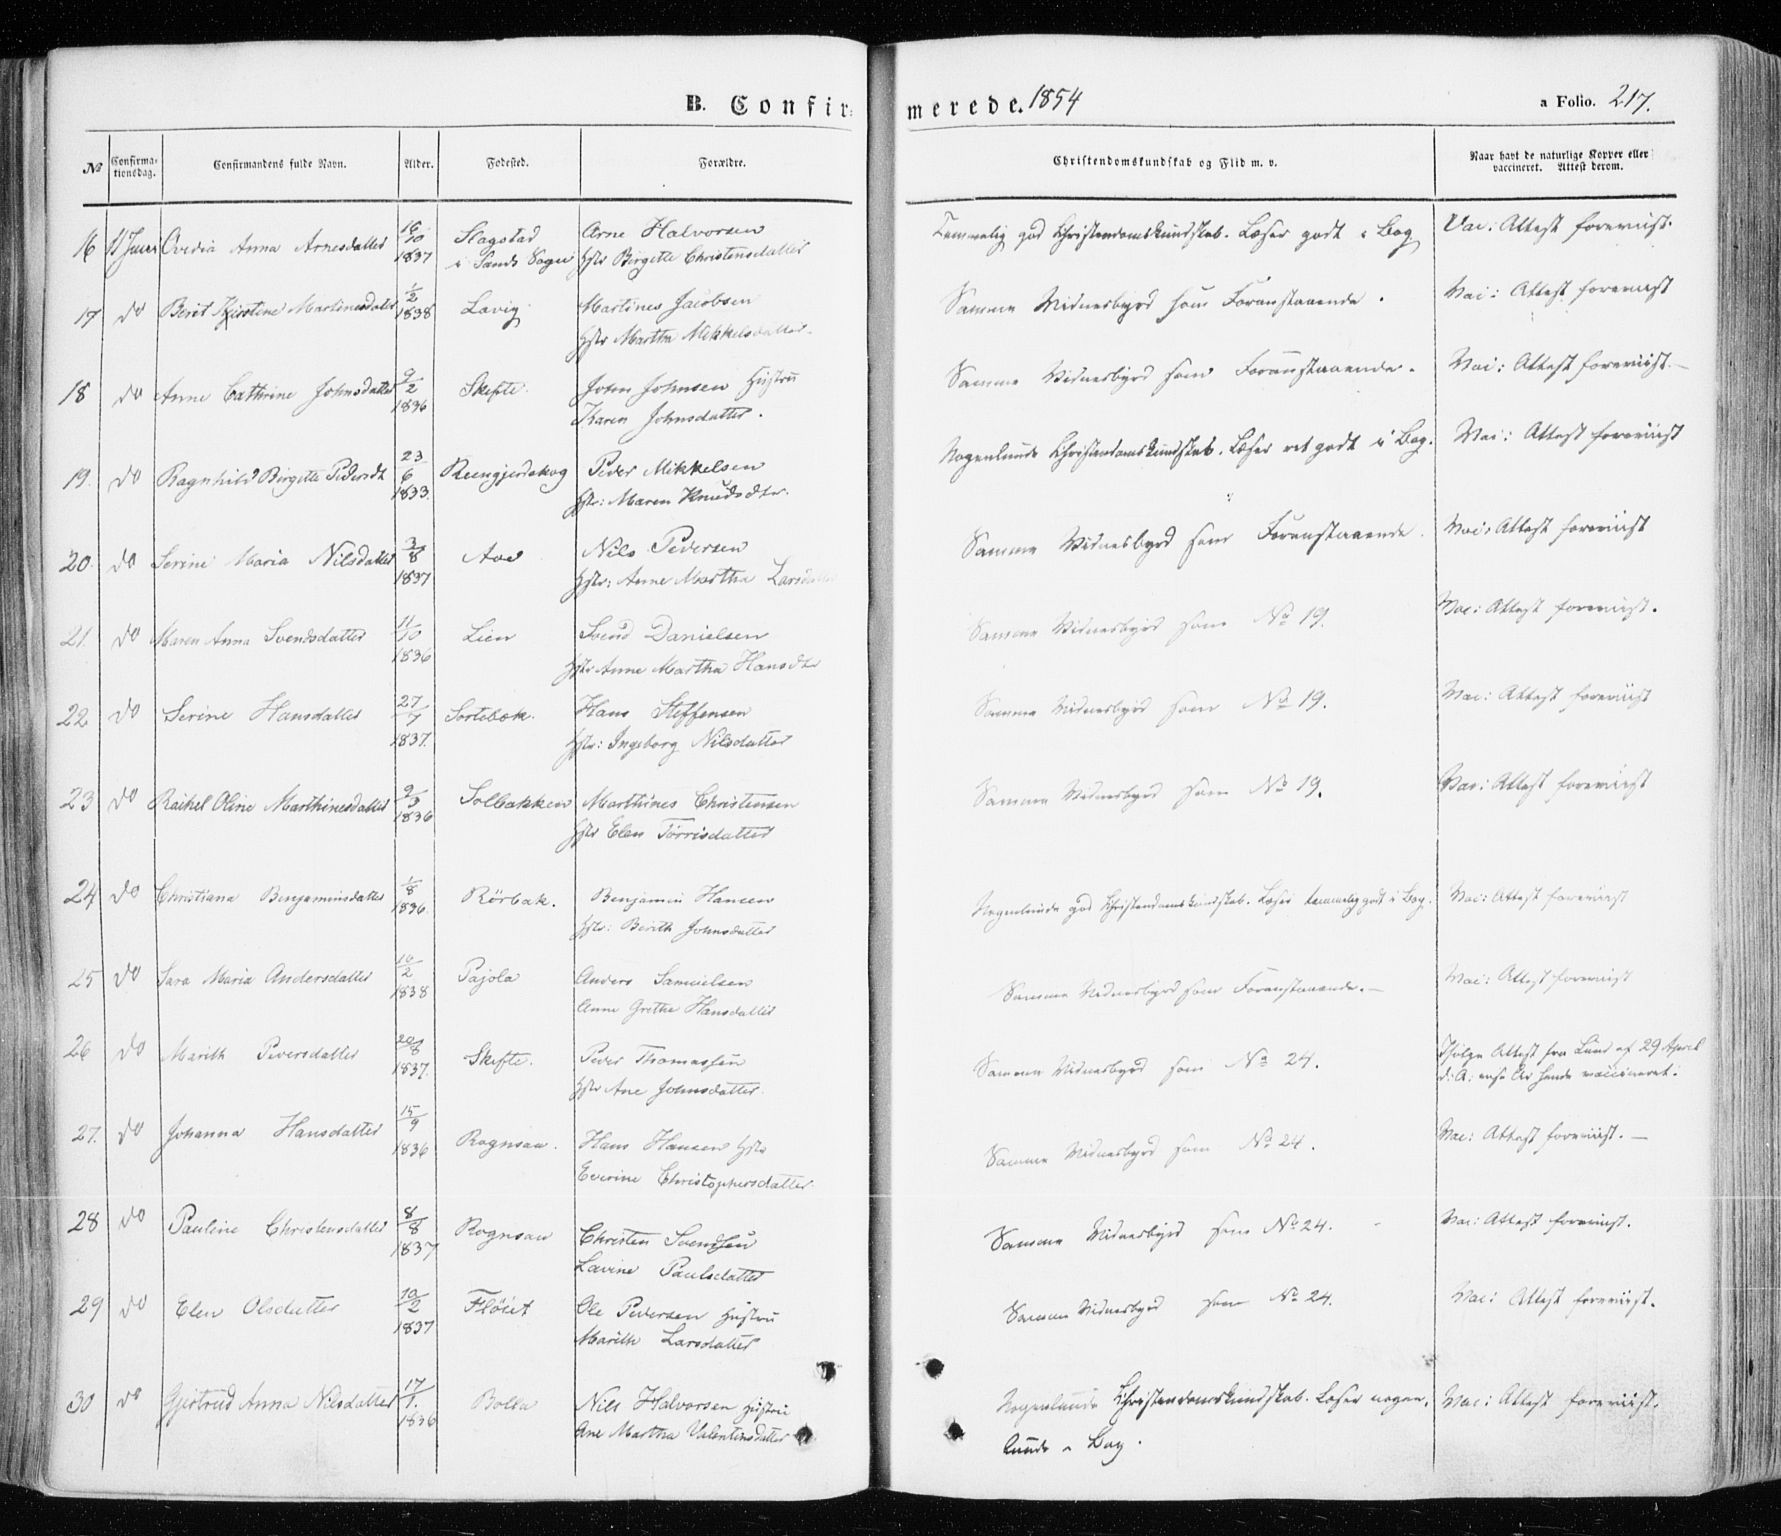 B. Confir= merede. 1854
a Folio. 217.
No Confirma-tionsdag. Confirmandens fulde Navn. Alder. Fødested. Forældre. Christendomskundskab og Flid m. v. Naar havt de naturlige Kopper eller vaccineret. Attest derom.
16 11 Juni Ovedia Anna Arnesdatter 16/10 1837 Slagstad i Sands Sogn Arne Halvorsen Temmelig god Christendomskundskab. Læser godt i Bog Vac: Attest foreviist.
Hstr Birgitte Christensdatter
17 do Berit Kjirstine Martinesdatter 1/2 1838 Lavig Martines Jacobsen Samme Vidnesbyrd som Foranstaaende. Vac: Attest foreviist
Hstr Martha Mikkelsdatter.
18 do Anne Cathrine Johnsdatter 9/2 1836 Skefte. John Johnsen Hustru Samme Vidnesbyrd som Foranstaaende. Vac: Attest foreviist.—
Karen Johnsdatter.
19. do Ragnhild Birgitte Pedersdt 23/6 1833. Reengjerdskog Peder Mikkelsen Nogenlunde Christendomskundskab. Læser ret godt i Bog. Vac: Attest foreviist
Hstr: Maren Knudsdtr.
20. do Serine Maria Nilsdatter 3/8 1837 Aae Nils Pedersen Samme Vidnesbyrd som Foranstaaende. Vac: Attest foreviist
Hstr: Anne Martha Larsdatter
21. do Maren Anna Svendsdatter 11/10 1836 Lien Svend Danielsen Samme Vidnesbyrd som No 19. Vac: Attest foreviist.
Hstr Anne Martha Hansdtr
22 do Serine Hansdatter 27/7 1837. Sortebæk. Hans Steffensen Samme Vidnesbyrd som No 19. Vac: Attest foreviist
Hstr: Ingeborg Nilsdatter
23 do Raikel Oline Marthinesdatter 9/3 1836 Solbakken Marthines Christensen Samme Vidnesbyrd som No 19. Vac: Attest foreviist
Hstr Elen Tørrisdatter
24 do Christiana Benjaminsdatter 1/8 1836. Rörbak. Benjamin Hansen Nogenlunde god Christendomskundskab. Læser temmelig godt i Bog. Vac: Attest foreviist
Hstr: Berith Johnsdatter
25 do Sara Maria Andersdatter 10/2 1838 Pajola Anders Samuelsen Samme Vidnesbyrd som Foranstaaende.— Vac: Attest foreviist
Anne Grethe Hansdatter
26 do Marith Pedersdatter 20/8 1837. Skefte. Peder Thomassen Samme Vidnesbyrd som No 24. Ifølge Attest fra Lund af 29 April
Hstr Ane Johnsdatter. d: A: hende vaccineret.
27. do Johanna Hansdatter 15/9 1836 Rognsaa. Hans Hansen Hstr Samme Vidnesbyrd som No 24. Vac: Attest foreviist.—
Everine Christophersdatter.
28 do Pauline Christensdatter 8/8 1837 Rognsaa Christen Svendsen Samme Vidnesbyrd som No 24. Vac: Attest foreviist.
Lavine Paulsdatter
29 do Elen Olsdatter 10/2 1837 Flöiet Ole Pedersen Hustru Samme Vidnesbyrd som No 24. Vac: Attest foreviist.
Marith Larsdatter
30 do Gjertrud Anna Nilsdatter 17/9. 1836 Bolla Nils Halvorsen Hustru Nogenlunde Christendomskundskab. Læser nogen- Vac: Attest foreviist.
Ane Martha Valentinsdatter lunde i Bog.